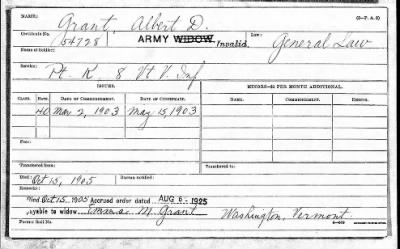 NAME: Grant, Albert D. (3-P.A.8)
Certificate No. 54728 ARMY WIDOW Invalid. Law: General Law
Name of Soldier:
Service: Pt. K 8 Vt. V. Inf
ISSUES. MINORS—$2 PER MONTH ADDITIONAL.
CLASS. RATE. DATE OF COMMENCEMENT. DATE OF CERTIFICATE. NAME. COMMENCING. ENDING.
40 Mar 2, 1903 May 15, 1903
Fee:
Transferred from: Transferred to:
Died: Oct 15, 1905 Bureau notified:
Remarks:
Died Oct 15 1905 Accrued order dated AUG 6 - 1925
payable to widow M. Grant Washington, Vermont.